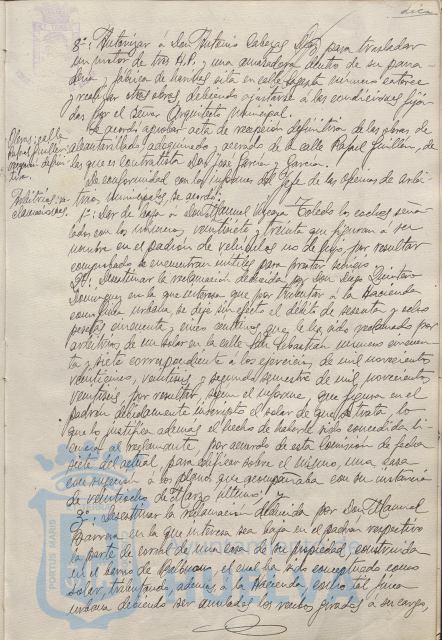 dica
8º: Autorizar á Don Antonio Cabezas Díaz, para trasladar
un motor de tres H.P. y una amasadora dentro de su pana-
dería y fábrica de harinas sita en calle número catorce
y realizar otras obras, debiendo ajustarse á las condiciones fija-
das por el Señor Arquitecto Municipal.
Obras: calle
Rafael Guillén,
recepción defini-
tiva.
Se acordó aprobar acta de recepción definitiva de las obras de
alcantarillado, adoquinado y acerado de la calle Rafael Guillén, de
las que es contratista Don José García y García.
Arbitrios, re-
clamaciones.
De conformidad con los informes del Jefe de las Oficinas de Arbi-
trios Municipales, se acordó:
1º: Dar de baja á Don Manuel Toledo los coches seña-
lados con los números veintisiete y treinta que figuran á su
nombre en el padrón de vehículos no de lujo, por resultar
comprobado se encuentran inútiles para prestar servicio.
2º: Desestimar la reclamación deducida por Don Diego Quintero
Domínguez en la que interesa que por tributar á la Hacienda
como finca urbana, se deje sin efecto el débito de sesenta y ocho
pesetas cincuenta y cinco céntimos que le ha sido reclamado por
arbitrios de un solar en la calle San Sebastián número cincuen-
ta y siete correspondiente á los ejercicios de mil novecientos
veinticinco, veintiseis y segundo semestre de mil novecientos
veintiseis, por resultar, según el informe, que figura en el
padrón debidamente inscripto el solar de que se trata, lo
que lo justifica además el hecho de haberle sido concedida li-
cencia al reclamante, por acuerdo de esta Comisión de fecha
siete del actual, para edificar sobre el mismo, una casa
con sujeción á los planos que acompañaba con su instancia
de veintiocho de Marzo último; y
3º: Desestimar la reclamación deducida por Don Manuel
Barrera en la que interesa sea baja en el padrón respectivo
la parte de corral de una casa de su propiedad construida
en el barrio de Balbueno, el cual ha sido conceptuado como
solar, tributando, además, á la Hacienda como tal finca
urbana debiendo ser anulados los recibos girados á su cargo,
PORTUS MARIS
HUELVA